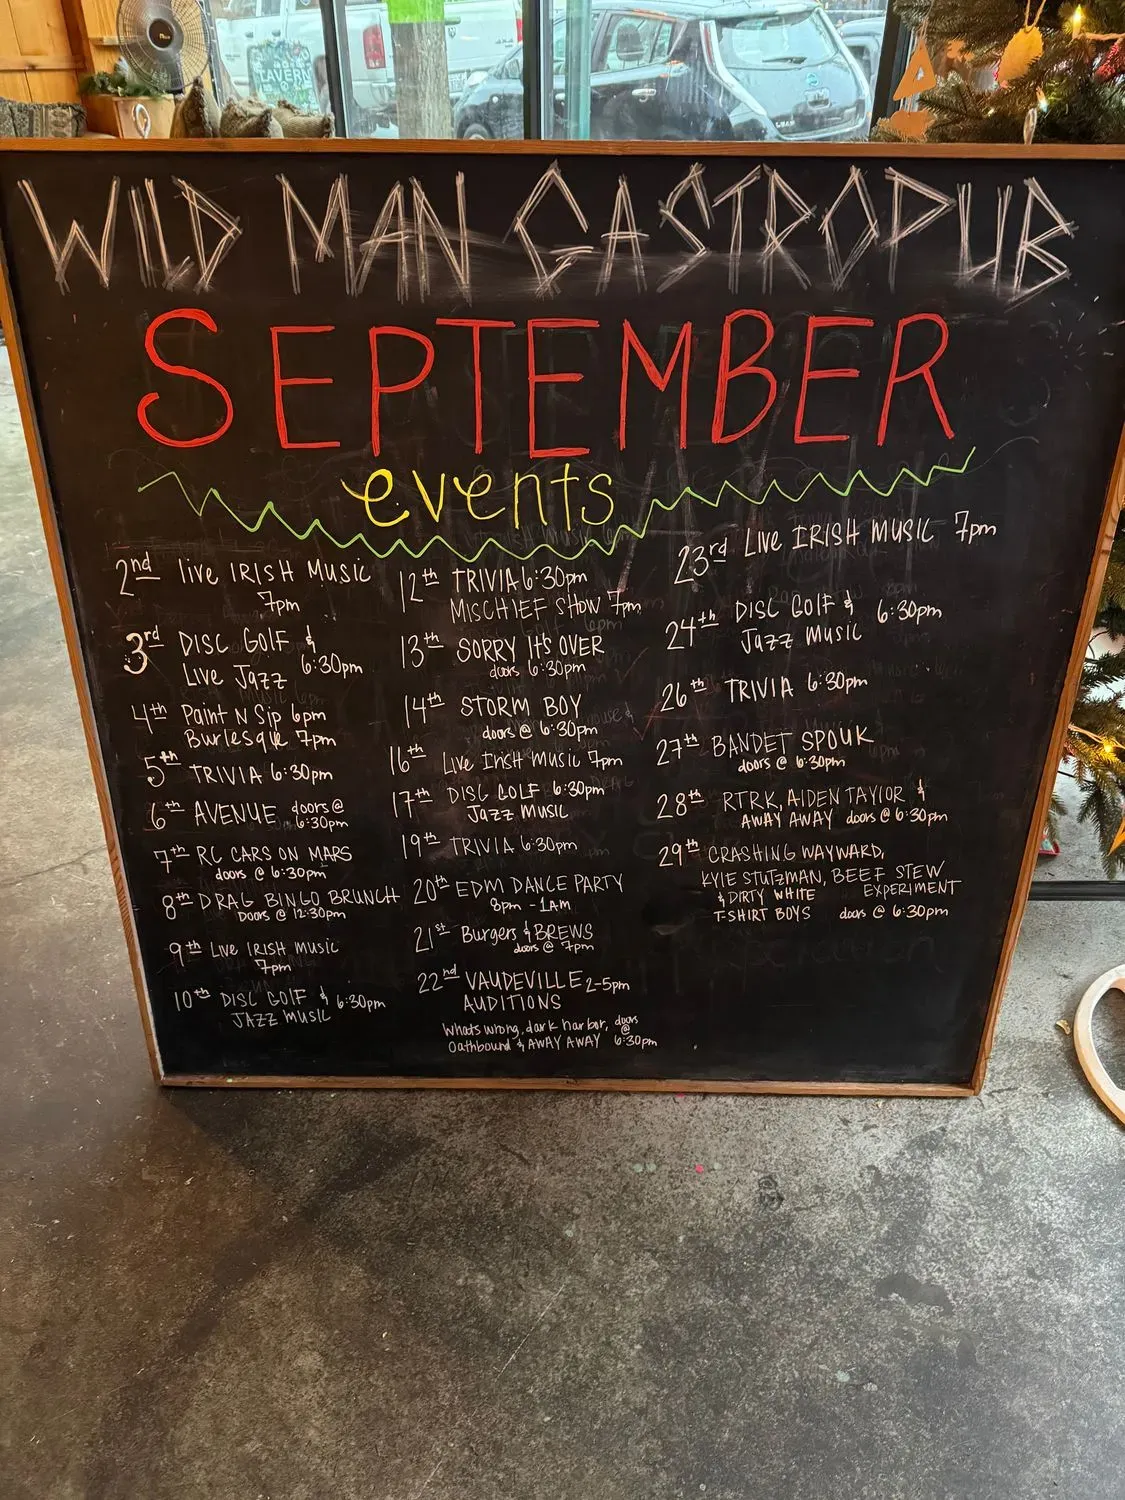 TAVERN
WILD MAN GASTROPUB
SEPTEMBER
events
2nd live IRISH MUSIC
7pm
3rd DISC GOLF &
Live Jazz 6:30pm
4th Paint N Sip 6pm
Burlesque 7pm
5th TRIVIA 6:30pm
6th AVENUE doors @
6:30pm
7th RC CARS ON MARS
doors @ 6:30pm
8th DRAG BINGO BRUNCH
Doors @ 12:30pm
9th Live IRISH MUSIC
7pm
10th DISC GOLF & 6:30pm
JAZZ MUSIC
12th TRIVIA 6:30pm
MISCHIEF SHOW 7pm
13th SORRY It's OVER
doors 6:30pm
14th STORM BOY
doors @ 6:30pm
16th Live IRISH MUSIC 7pm
17th DISC GOLF 6:30pm
JAZZ MUSIC
19th TRIVIA 6:30pm
20th EDM DANCE PARTY
8pm - 1AM
21st Burgers & BREWS
doors @ 7pm
22nd VAUDEVILLE 2-5pm
AUDITIONS
Whats wrong, dark harbor, doors @
Oathbound & AWAY AWAY 6:30pm
23rd Live IRISH MUSIC 7pm
24th DISC GOLF & 6:30pm
Jazz MUSIC
26th TRIVIA 6:30pm
27th BANDET SPOUK
doors @ 6:30pm
28th RTRK, AIDEN TAYLOR &
AWAY AWAY doors @ 6:30pm
29th CRASHING WAYWARD,
KYLE STUTZMAN, BEEF STEW
& DIRTY WHITE EXPERIMENT
T-SHIRT BOYS doors @ 6:30pm